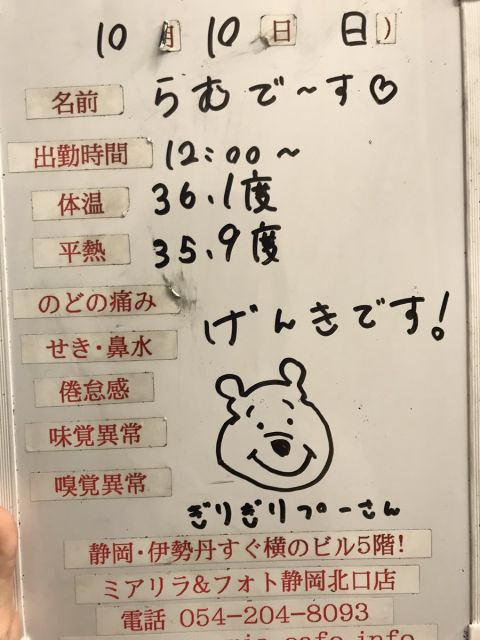 10月10日 日)
名前 らむで～す♡
出勤時間 12:00～
体温 36.1度
平熱 35.9度
のどの痛み
げんきです!
せき・鼻水
倦怠感
味覚異常
嗅覚異常
ぎりぎりプーさん
静岡・伊勢丹すぐ横のビル5階!
ミアリラ&フォト静岡北口店
電話 054-204-8093